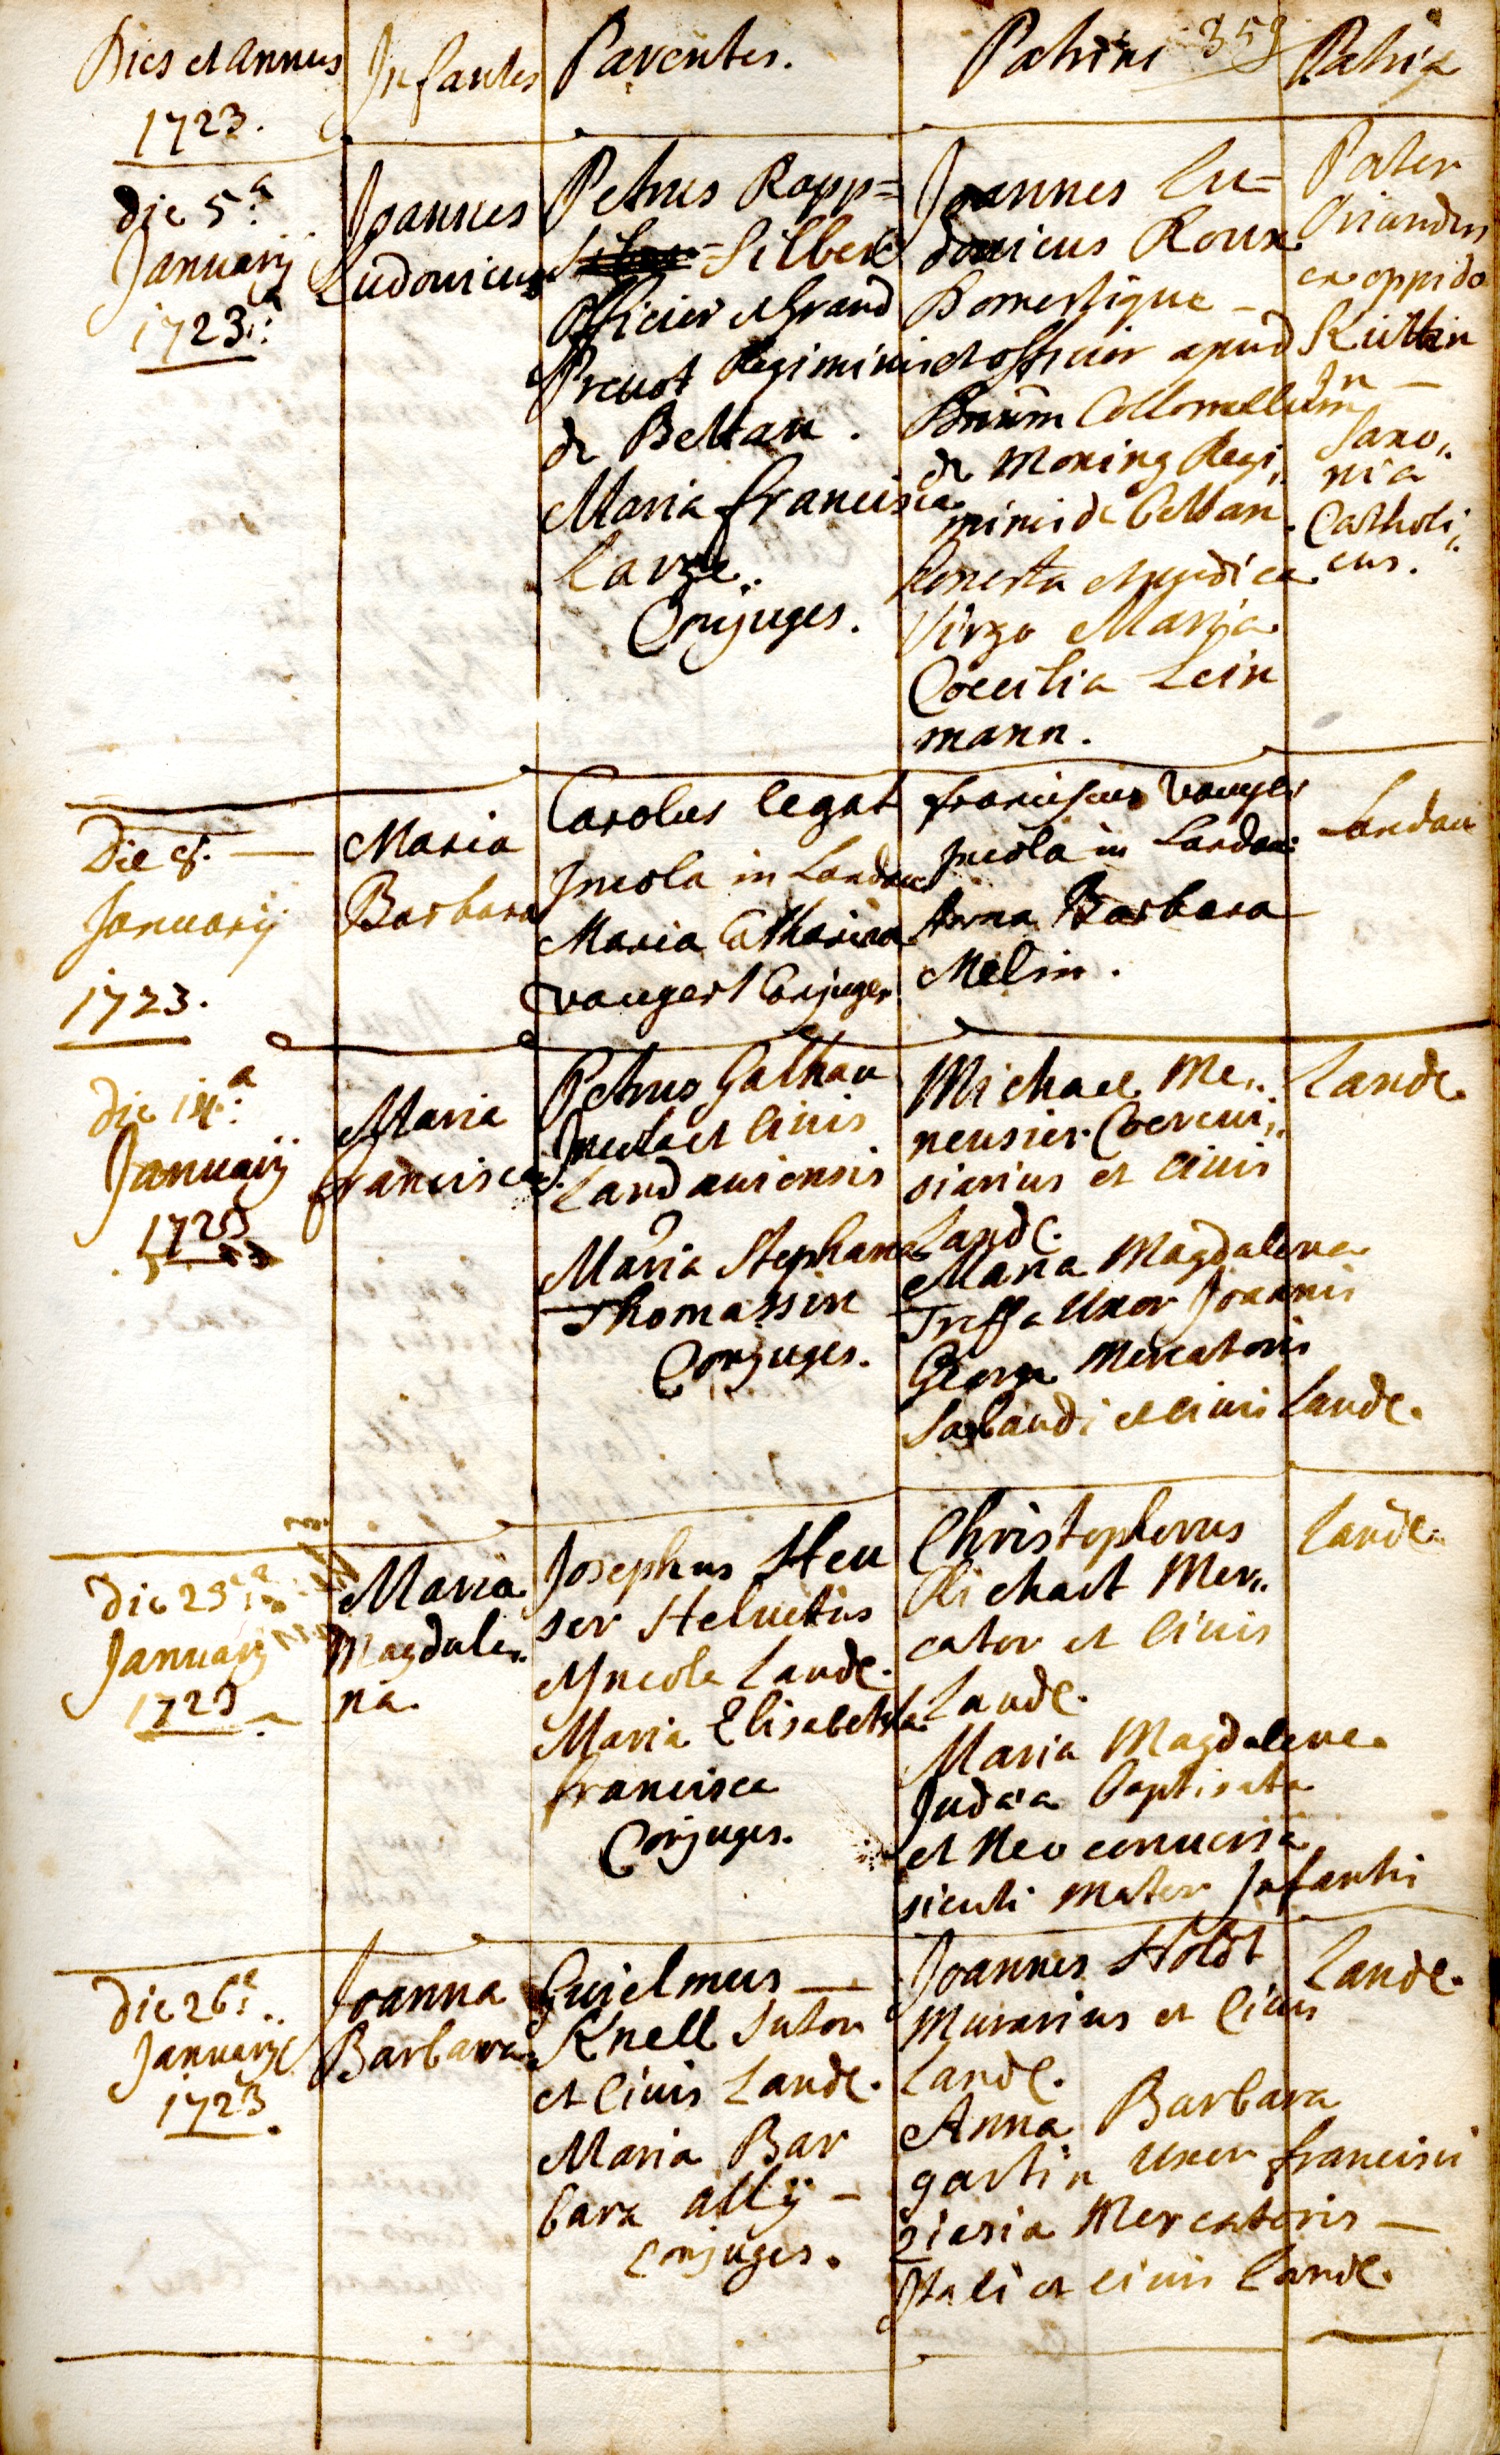 Dies et Annus
1723.
Infantes
Parentes.
Patrini
Patria
die 5.a
January
1723.
Joannes
Ludovicus
Petrus Rapp=
=Silber
Officier et Grand
Prevot Regiminis
de Bettan.
Maria francisca
Conjuges.
Joannes Lu=
dovicus Roux
Domestique –
et officier apud
Dnum Collonellum
de Moning Regi„
minis de Bettan.
honesta et pudica
Virgo Maria
Coecilia Lein
mann.
Pater
Oriundus
ex oppido
In –
Saxo„
nia
Catholi„
cus.
Die 8. —
January
1723.
Maria
Barbara
Carolus legat
Incola in Landau
Maria Catharina
vaugert Conjuges
franciscus vauger
Incola in Landau
Anna Barbara
Melin.
Landau
die 14.a
January
1723
Maria
francisca.
Petrus Galhau
Incola et Civis
Landaviensis
Maria Stephana
Thomassin
Conjuges.
Michael Me„
neusier Cerevi„
siarius et Civis
Land.
Maria Magdalena
Treffa Uxor Joannis
George Mercatoris
Sabaudi et civis Land.
Land.
die 25
January
1723
Maria
Magdale„
na.
Josephus Heu
ser Helvetus
Incola Land.
Maria Elisabetha
francisca
Conjuges.
Christophorus
Richart Mer„
cator et Civis
Land.
Maria Magdalena
Judaea baptisata
et Neo conversa
sicuti Mater Infantis
Land.
die 26.
January
1723.
Joanna
Barbara
Guielmus —
Knell Sutor
et Civis Land.
Maria Bar
bara ally –
Conjuges.
Joannes Holdt
Murarius et Civis
Land.
Anna Barbara
gartin Uxor francisci
Mercatoris –
Itali et civis Land.
Land.